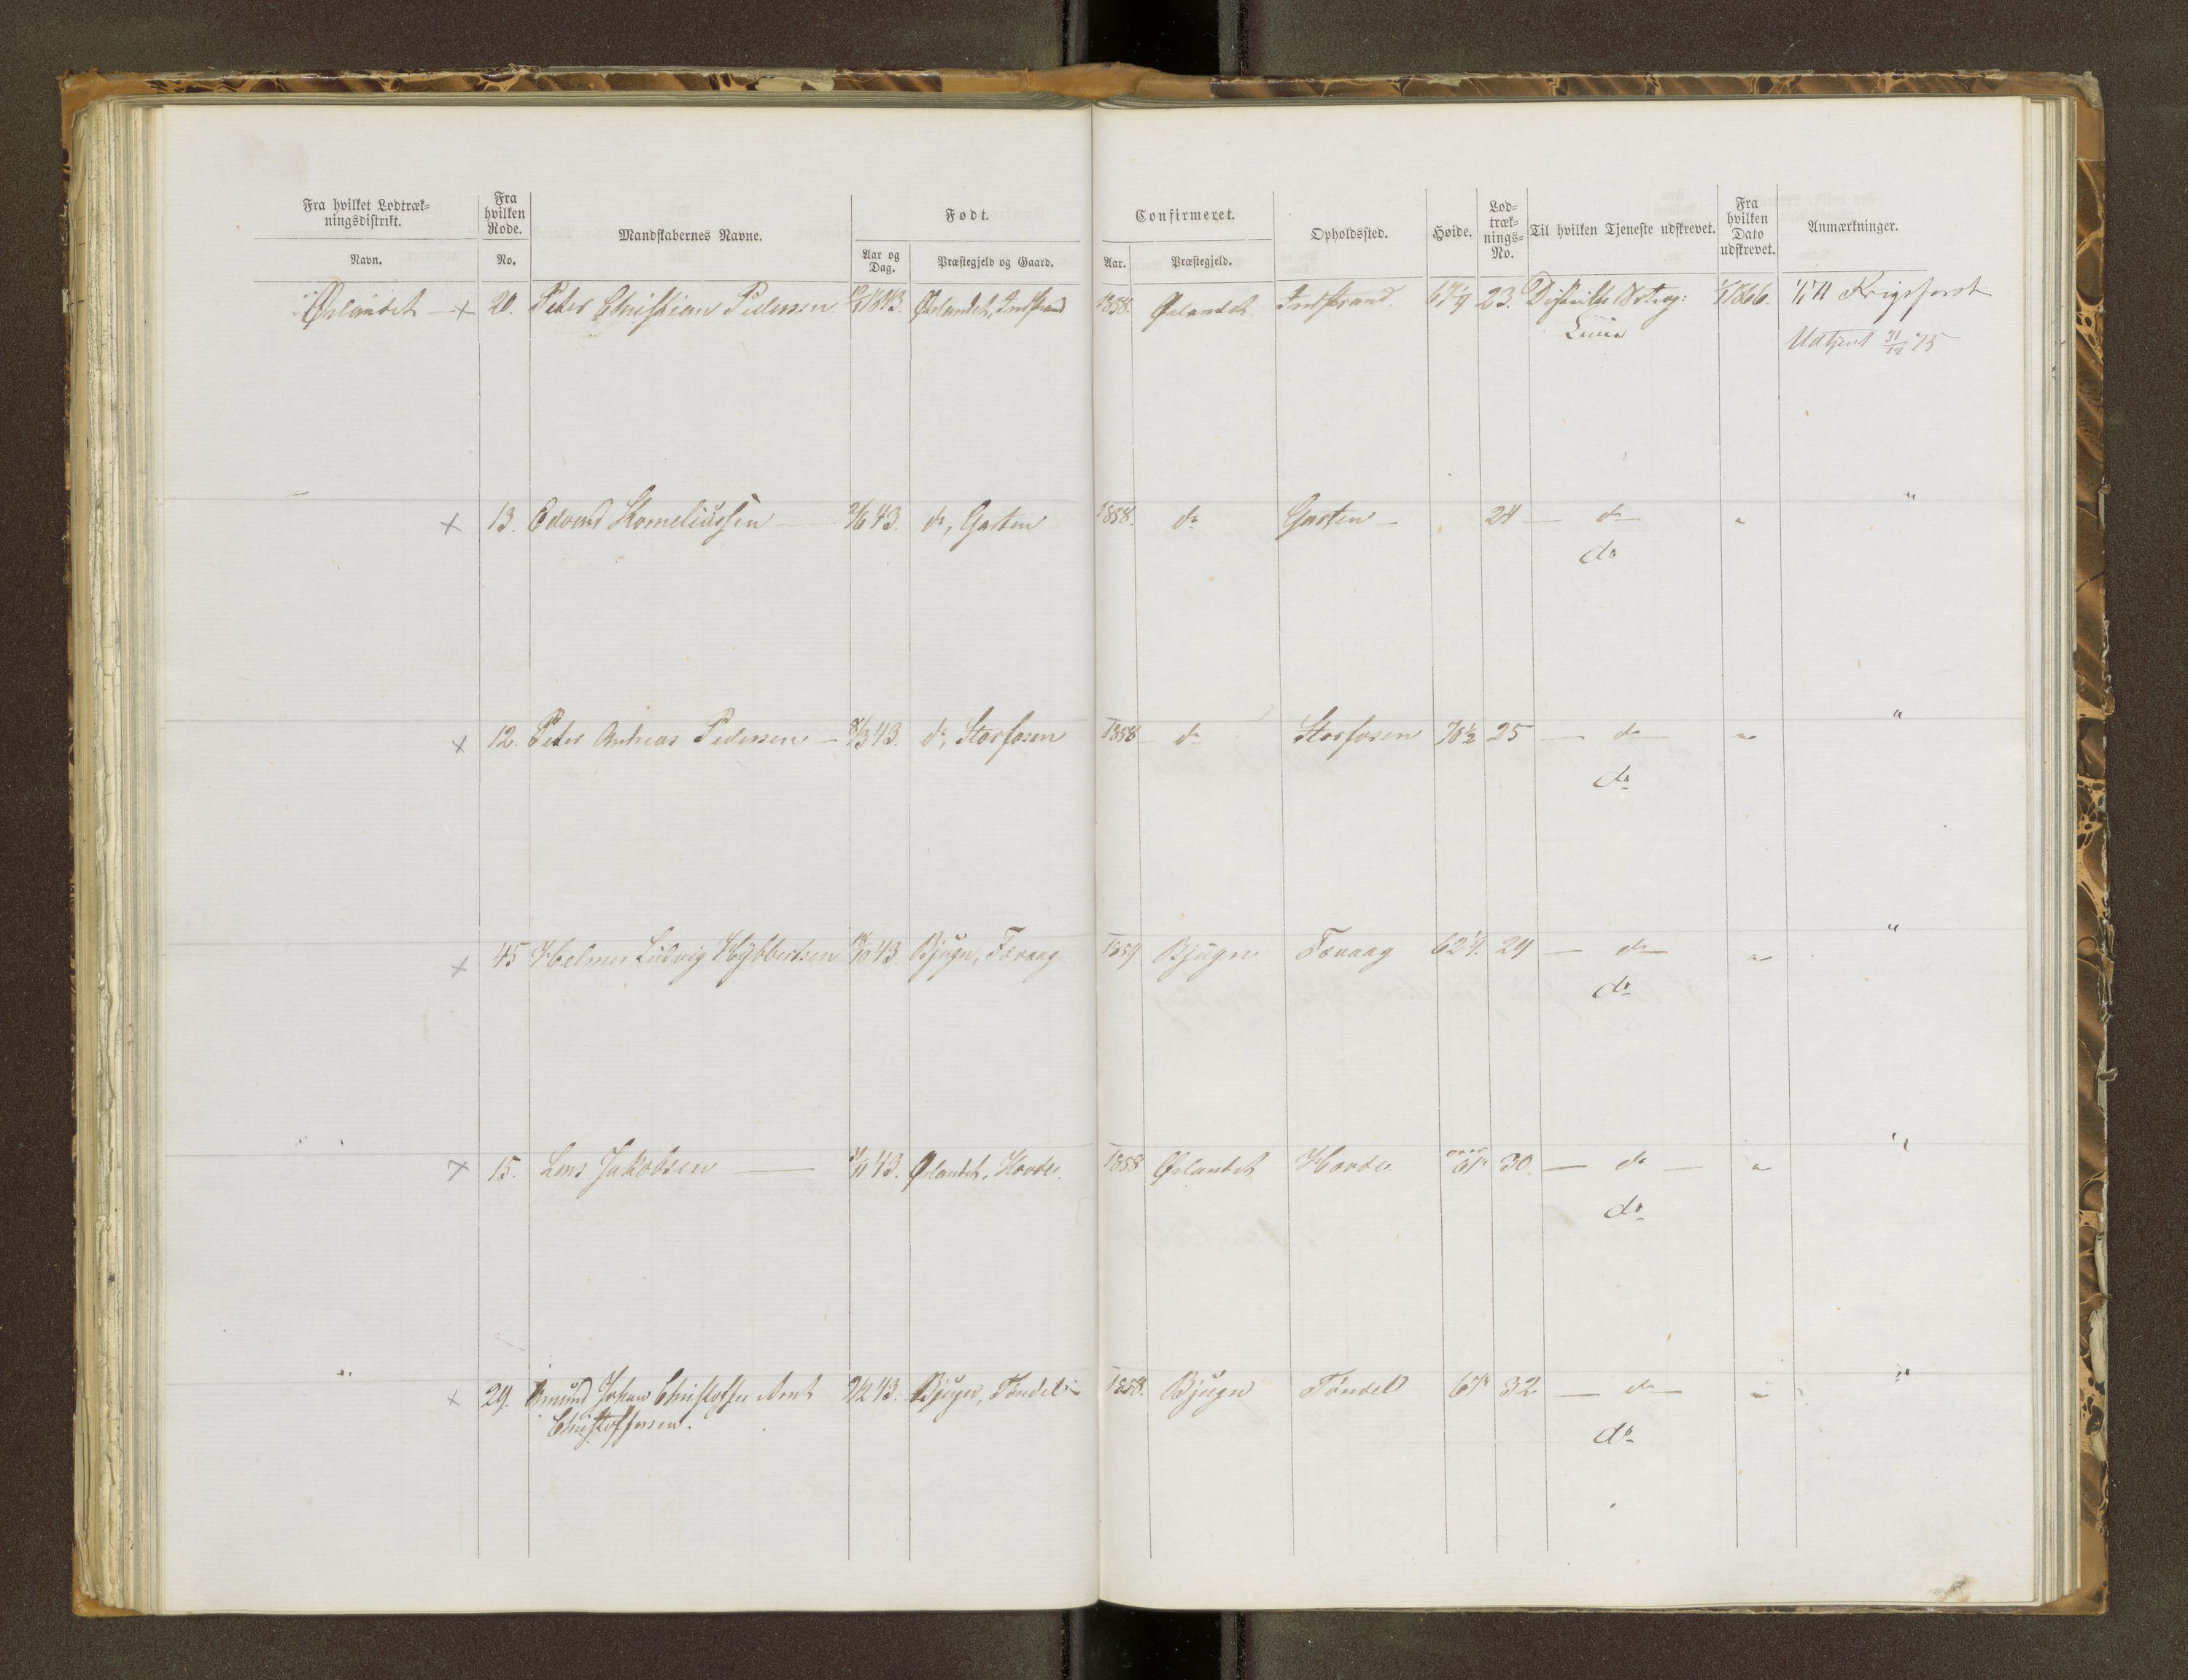 Fra hvilket Lodtræk-
ningsdistrikt.
Navn.
Fra
hvilken
Rode.
No.
Mandskabernes Navne.
Født.
Aar og
Dag.
Præstegjeld og Gaard.
Confirmeret.
Aar.
Præstegjeld.
Opholdssted.
Høide.
Lod-
træk-
nings-
No.
Til hvilken Tjeneste udskrevet.
Fra
hvilken
Dato
udskrevet.
Anmærkninger.
Ørlandet — x 20. Peter Christian Pedersen 1843. Ørlandet, Indstrand 1858. Ørlandet Indstrand. 23. 1/1 1866. Krigsforst
Linien Udtjent 31/12 75
x 13. Edvard Korneliussen — 43. do, Garten 1858. do Garten — 24 — do — " "
do
x 12. Peter Andreas Pedersen — 43. do, Storfosen 1858 do Storfosen 70 1/2 25 — do — " "
do
x 45 Helmer Ludvig Hybbertsen 43. Bjugn, Tevaag 1859 Bjugn Tevaag 29 — do — " "
do
x 15. Lars Jakobsen — 43. Ørlandet, Hovde. 1858 Ørlandet Hovde 30 — do — " "
do
" x 29. Amund Johan Christoffer Arnt 43. Bjugn, Tøndel 1858. Bjugn Tøndel 32 — do — " "
Christoffersen. do